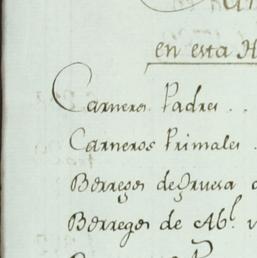 en esta H
Carneros Padres . .
Carneros Primales .
Borregos de Gruesa
Borregos de Abl.